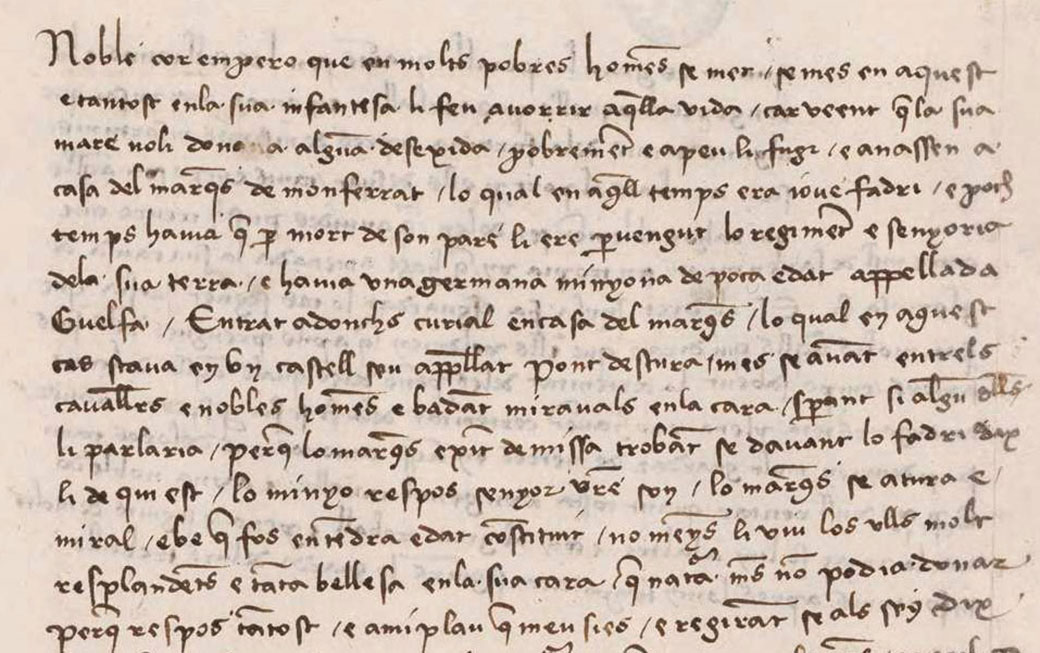 Noble cor empero que en molts pobres homẽs se met / se mes en aquest
e tantost en la sua infantesa li feu auorrir aq̃lla vida / car veent q̃ la sua
mare noli dona a algũa desexida / pobremẽt e apeu li fugi / e anassen a
casa del marq̃s de monferrat / lo qual en aq̃ll temps era ioue fadri / e poch
temps hauia q̃ ꝑ mort de son pare li ere ꝑuengut lo regimẽt e senyoria
dela sua terra / e hauia vna germana minyona de poca edat appellada
Guelfa / Entrat adonchs curial en casa del marq̃s / lo qual en aquest
cas staua en vn castell seu appellat Pont destura / mes se auãt entrels
cauallrs e nobles homẽs e badãt mirauals en la cara / sperant si algu dells
li parlaria / perq̃ lo marq̃s exĩt de missa trobãt se dauant lo fadri dix
li de qui est / lo minyo respos senyor vr̃e son / lo marq̃s se atura e
miral / e be q̃ fos en tẽdra edat cõstituit / no menys li viu los vlls molt
resplandẽts e tãta bellesa en la sua cara / q̃ natã mẽs nõ podia donar
perq̃ respos tãtost / e ami plau q̃ meu sies / e regirãt se als seus dix